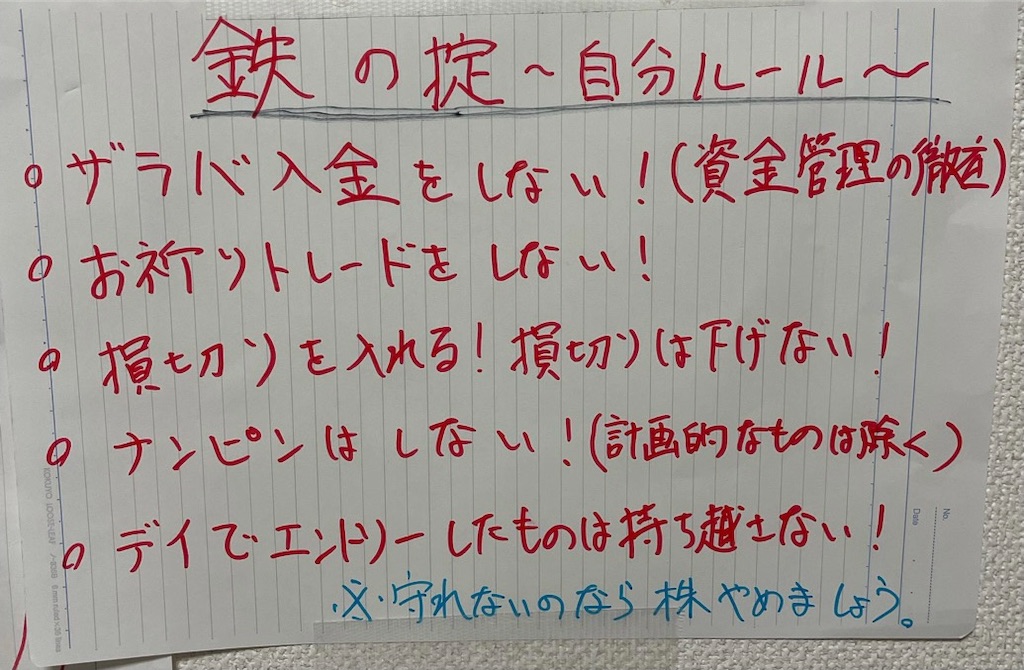 鉄の掟～自分ルール～
○ ザラバ入金をしない！(資金管理の徹底)
○ お祈りトレードをしない！
○ 損切りを入れる！損切りは下げない！
○ ナンピンはしない！(計画的なものは除く)
○ デイでエントリーしたものは持ち越さない！
※守れないのなら株やめましょう。
No.
Date